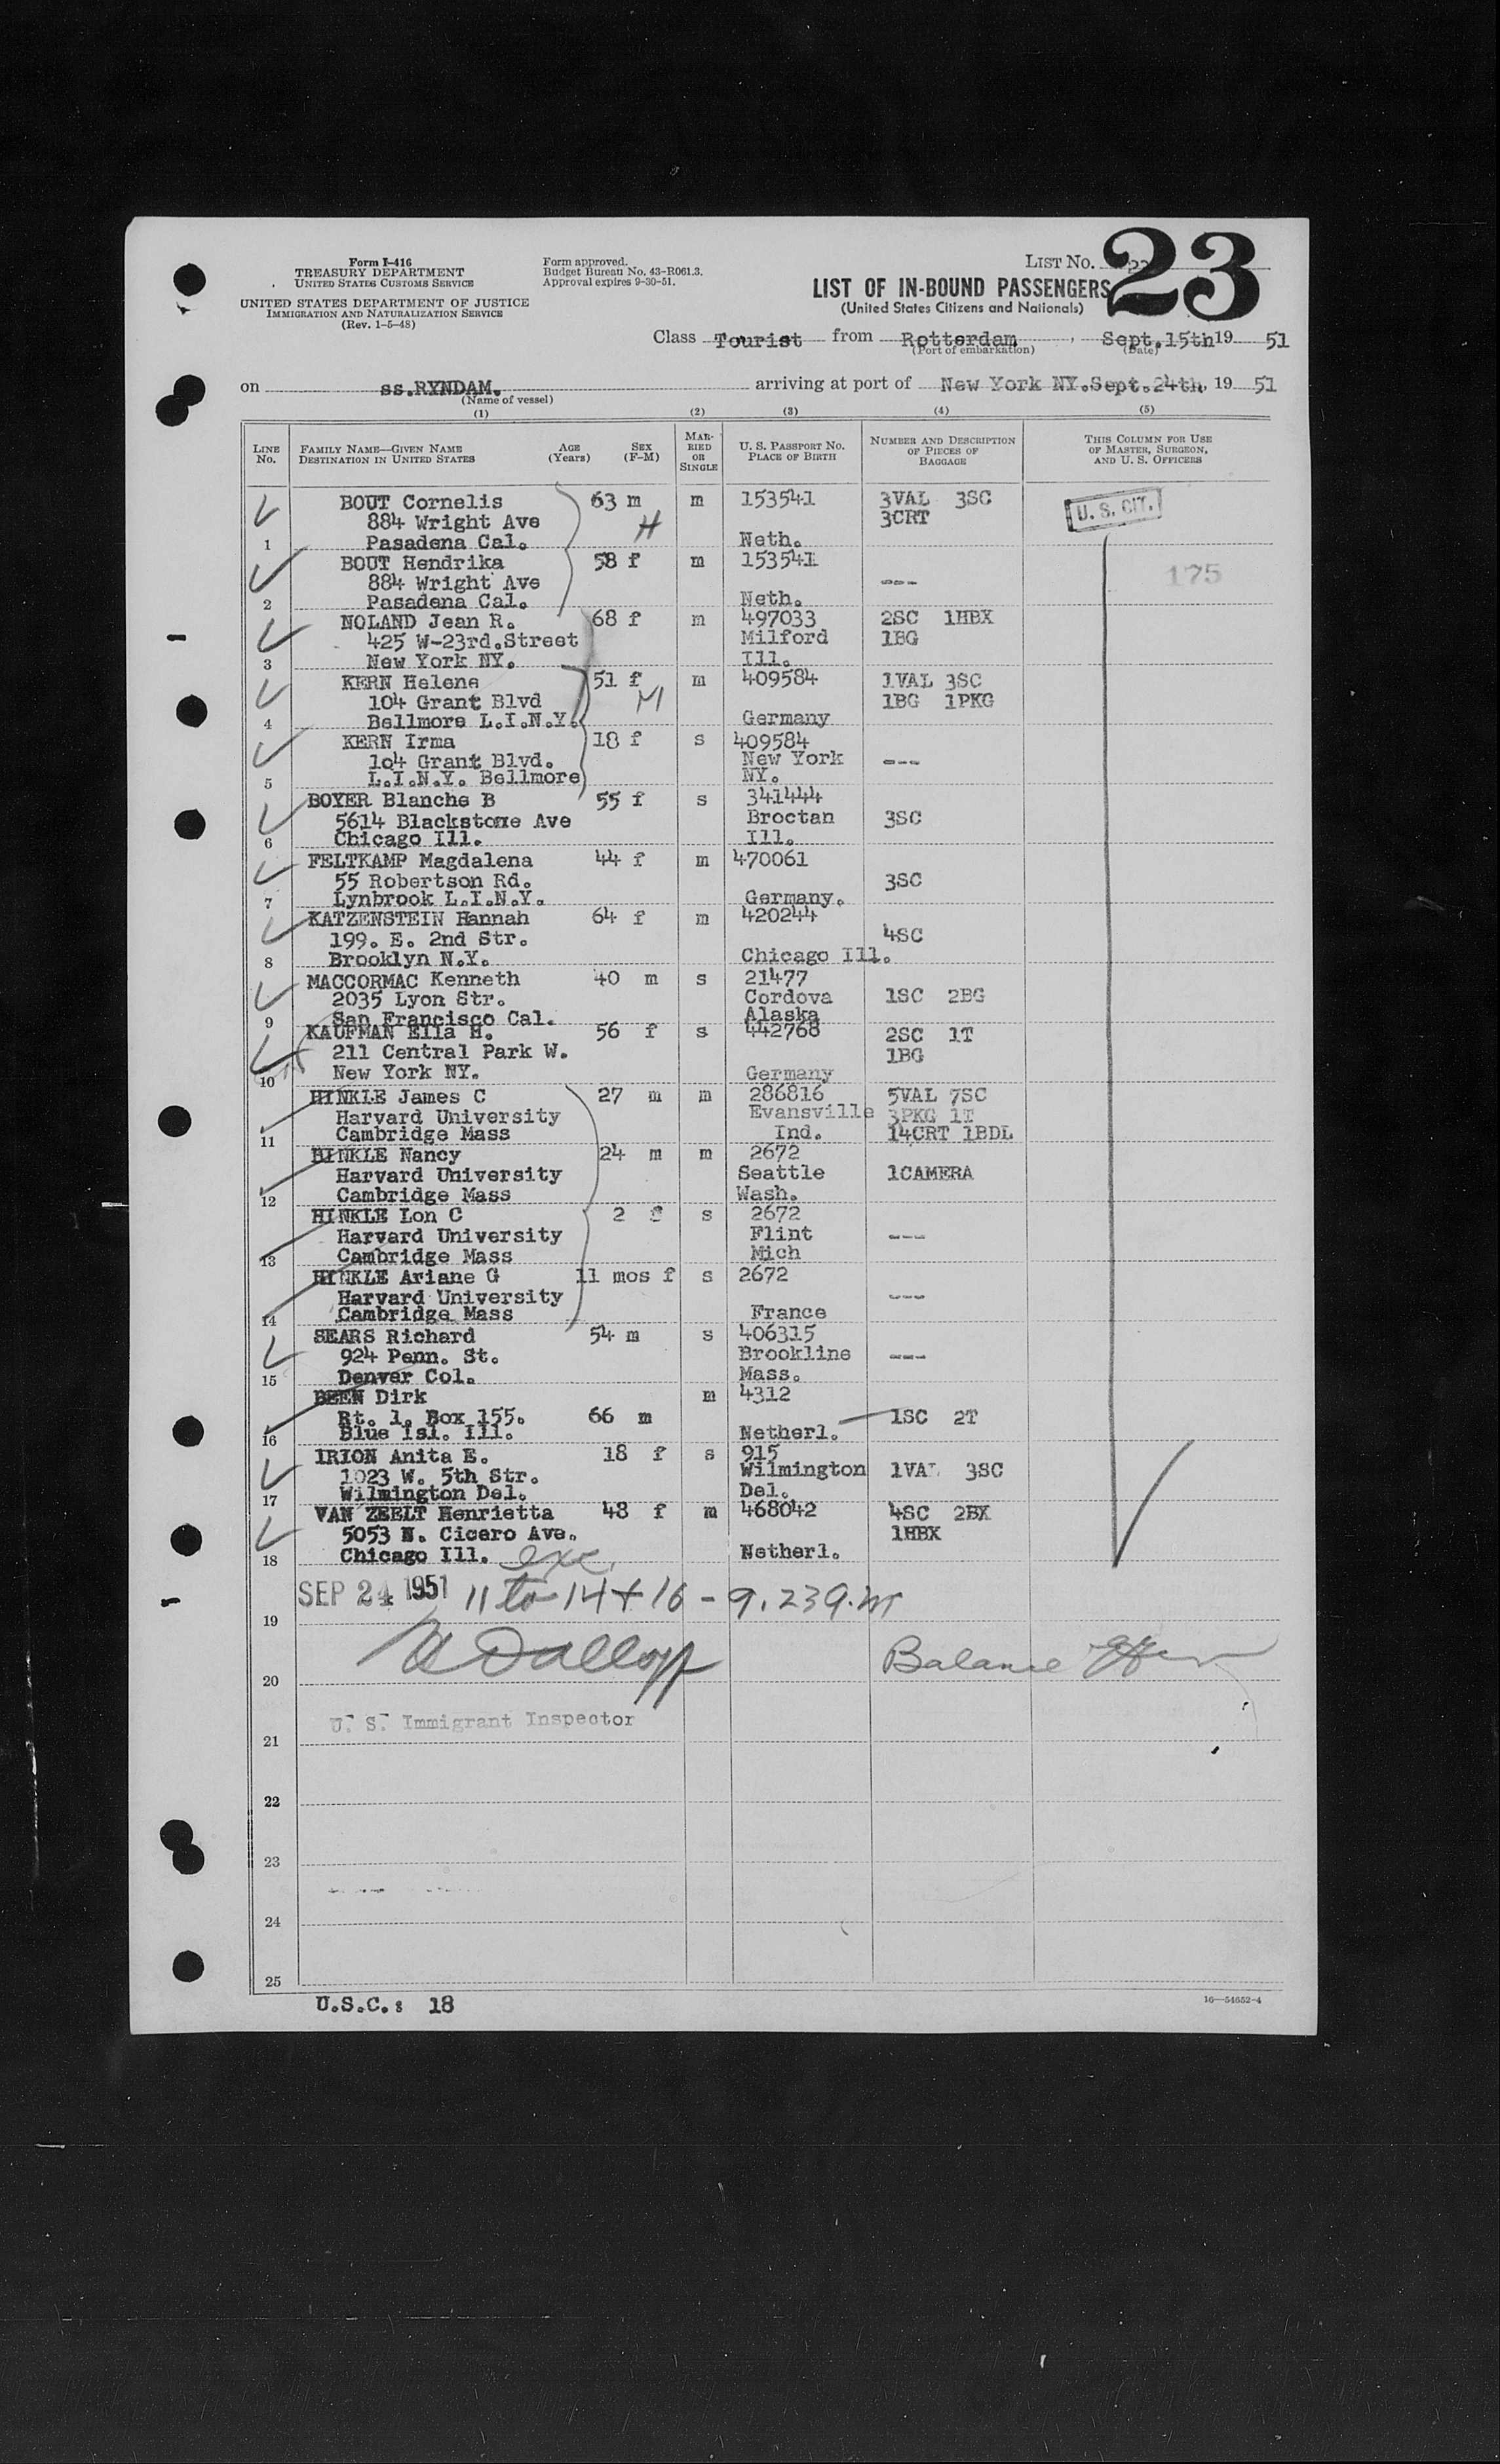 Form I-416
TREASURY DEPARTMENT
UNITED STATES CUSTOMS SERVICE
UNITED STATES DEPARTMENT OF JUSTICE
IMMIGRATION AND NATURALIZATION SERVICE
(Rev. 1-5-48)
Form approved.
Budget Bureau No. 43-R061.3.
Approval expires 9-30-51.
LIST NO.
23
LIST OF IN-BOUND PASSENGERS
(United States Citizens and Nationals)
Class Tourist from Rotterdam, Sept.15th 19 51
(Port of embarkation) (Date)
on ss.RYNDAM. arriving at port of New York NY.Sept.24th, 19 51
(Name of vessel)
(1) (2) (3) (4) (5)
LINE No. FAMILY NAME—GIVEN NAME DESTINATION IN UNITED STATES AGE (Years) SEX (F-M) MARRIED OR SINGLE U. S. PASSPORT NO. PLACE OF BIRTH NUMBER AND DESCRIPTION OF PIECES OF BAGGAGE THIS COLUMN FOR USE OF MASTER, SURGEON, AND U. S. OFFICERS
BOUT Cornelis 63 m m 153541 3VAL 3SC U. S. CIT.
884 Wright Ave H 3CRT
1 Pasadena Cal. Neth.
BOUT Hendrika 58 f m 153541
884 Wright Ave --- 175
2 Pasadena Cal. Neth.
NOLAND Jean R. 68 f m 497033 2SC 1HBX
425 W-23rd.Street Milford 1BG
3 New York NY. Ill.
KERN Helene 51 f m 409584 1VAL 3SC
104 Grant Blvd M 1BG 1PKG
4 Bellmore L.I.N.Y. Germany
KERN Irma 18 f s 409584
104 Grant Blvd. New York ---
5 L.I.N.Y. Bellmore NY.
BOYER Blanche B 55 f s 341444
5614 Blackstone Ave Broctan 3SC
6 Chicago Ill. Ill.
FELTKAMP Magdalena 44 f m 470061
55 Robertson Rd. 3SC
7 Lynbrook L.I.N.Y. Germany.
KATZENSTEIN Hannah 64 f m 420244
199. E. 2nd Str. 4SC
8 Brooklyn N.Y. Chicago Ill.
MACCORMAC Kenneth 40 m s 21477
2035 Lyon Str. Cordova 1SC 2BG
9 San Francisco Cal. Alaska
KAUFMAN Ella H. 56 f s 442768 2SC 1T
211 Central Park W. 1BG
10 New York NY. Germany
HINKLE James C 27 m m 286816 5VAL 7SC
Harvard University Evansville 3PKG 1T
11 Cambridge Mass Ind. 14CRT 1BDL
HINKLE Nancy 24 m m 2672
Harvard University Seattle 1CAMERA
12 Cambridge Mass Wash.
HINKLE Lon C 2 f s 2672
Harvard University Flint ---
13 Cambridge Mass Mich
HINKLE Ariane G 11 mos f s 2672
Harvard University ---
14 Cambridge Mass France
SEARS Richard 54 m s 406315
924 Penn. St. Brookline ---
15 Denver Col. Mass.
BEEN Dirk m 4312
Rt. 1. Box 155. 66 m 1SC 2T
16 Blue Isl. Ill. Netherl.
IRION Anita E. 18 f s 915
1023 W. 5th Str. Wilmington 1VAL 3SC
17 Wilmington Del. Del.
VAN ZEELT Henrietta 48 f m 468042 4SC 2BX
5053 N. Cicero Ave. 1HBX
18 Chicago Ill. exc. Netherl.
SEP 24 1951 11 to 14 + 16 - 9.239.
19
Balance
20
U. S. Immigrant Inspector
21
22
23
24
25
U.S.C.: 18
16—54652-4